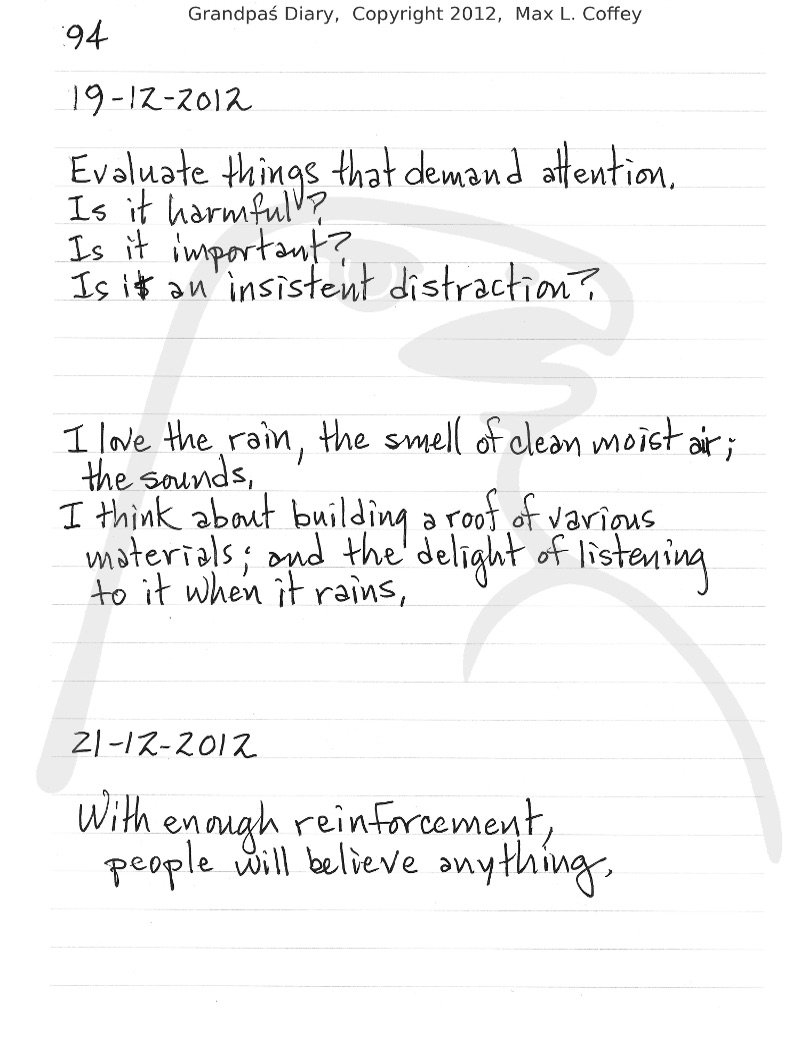 Grandpaś Diary, Copyright 2012, Max L. Coffey
94
19-12-2012
Evaluate things that demand attention.
Is it harmful?
Is it important?
Is it an insistent distraction?
I love the rain, the smell of clean moist air;
the sounds,
I think about building a roof of various
materials; and the delight of listening
to it when it rains,
21-12-2012
With enough reinforcement,
people will believe anything.